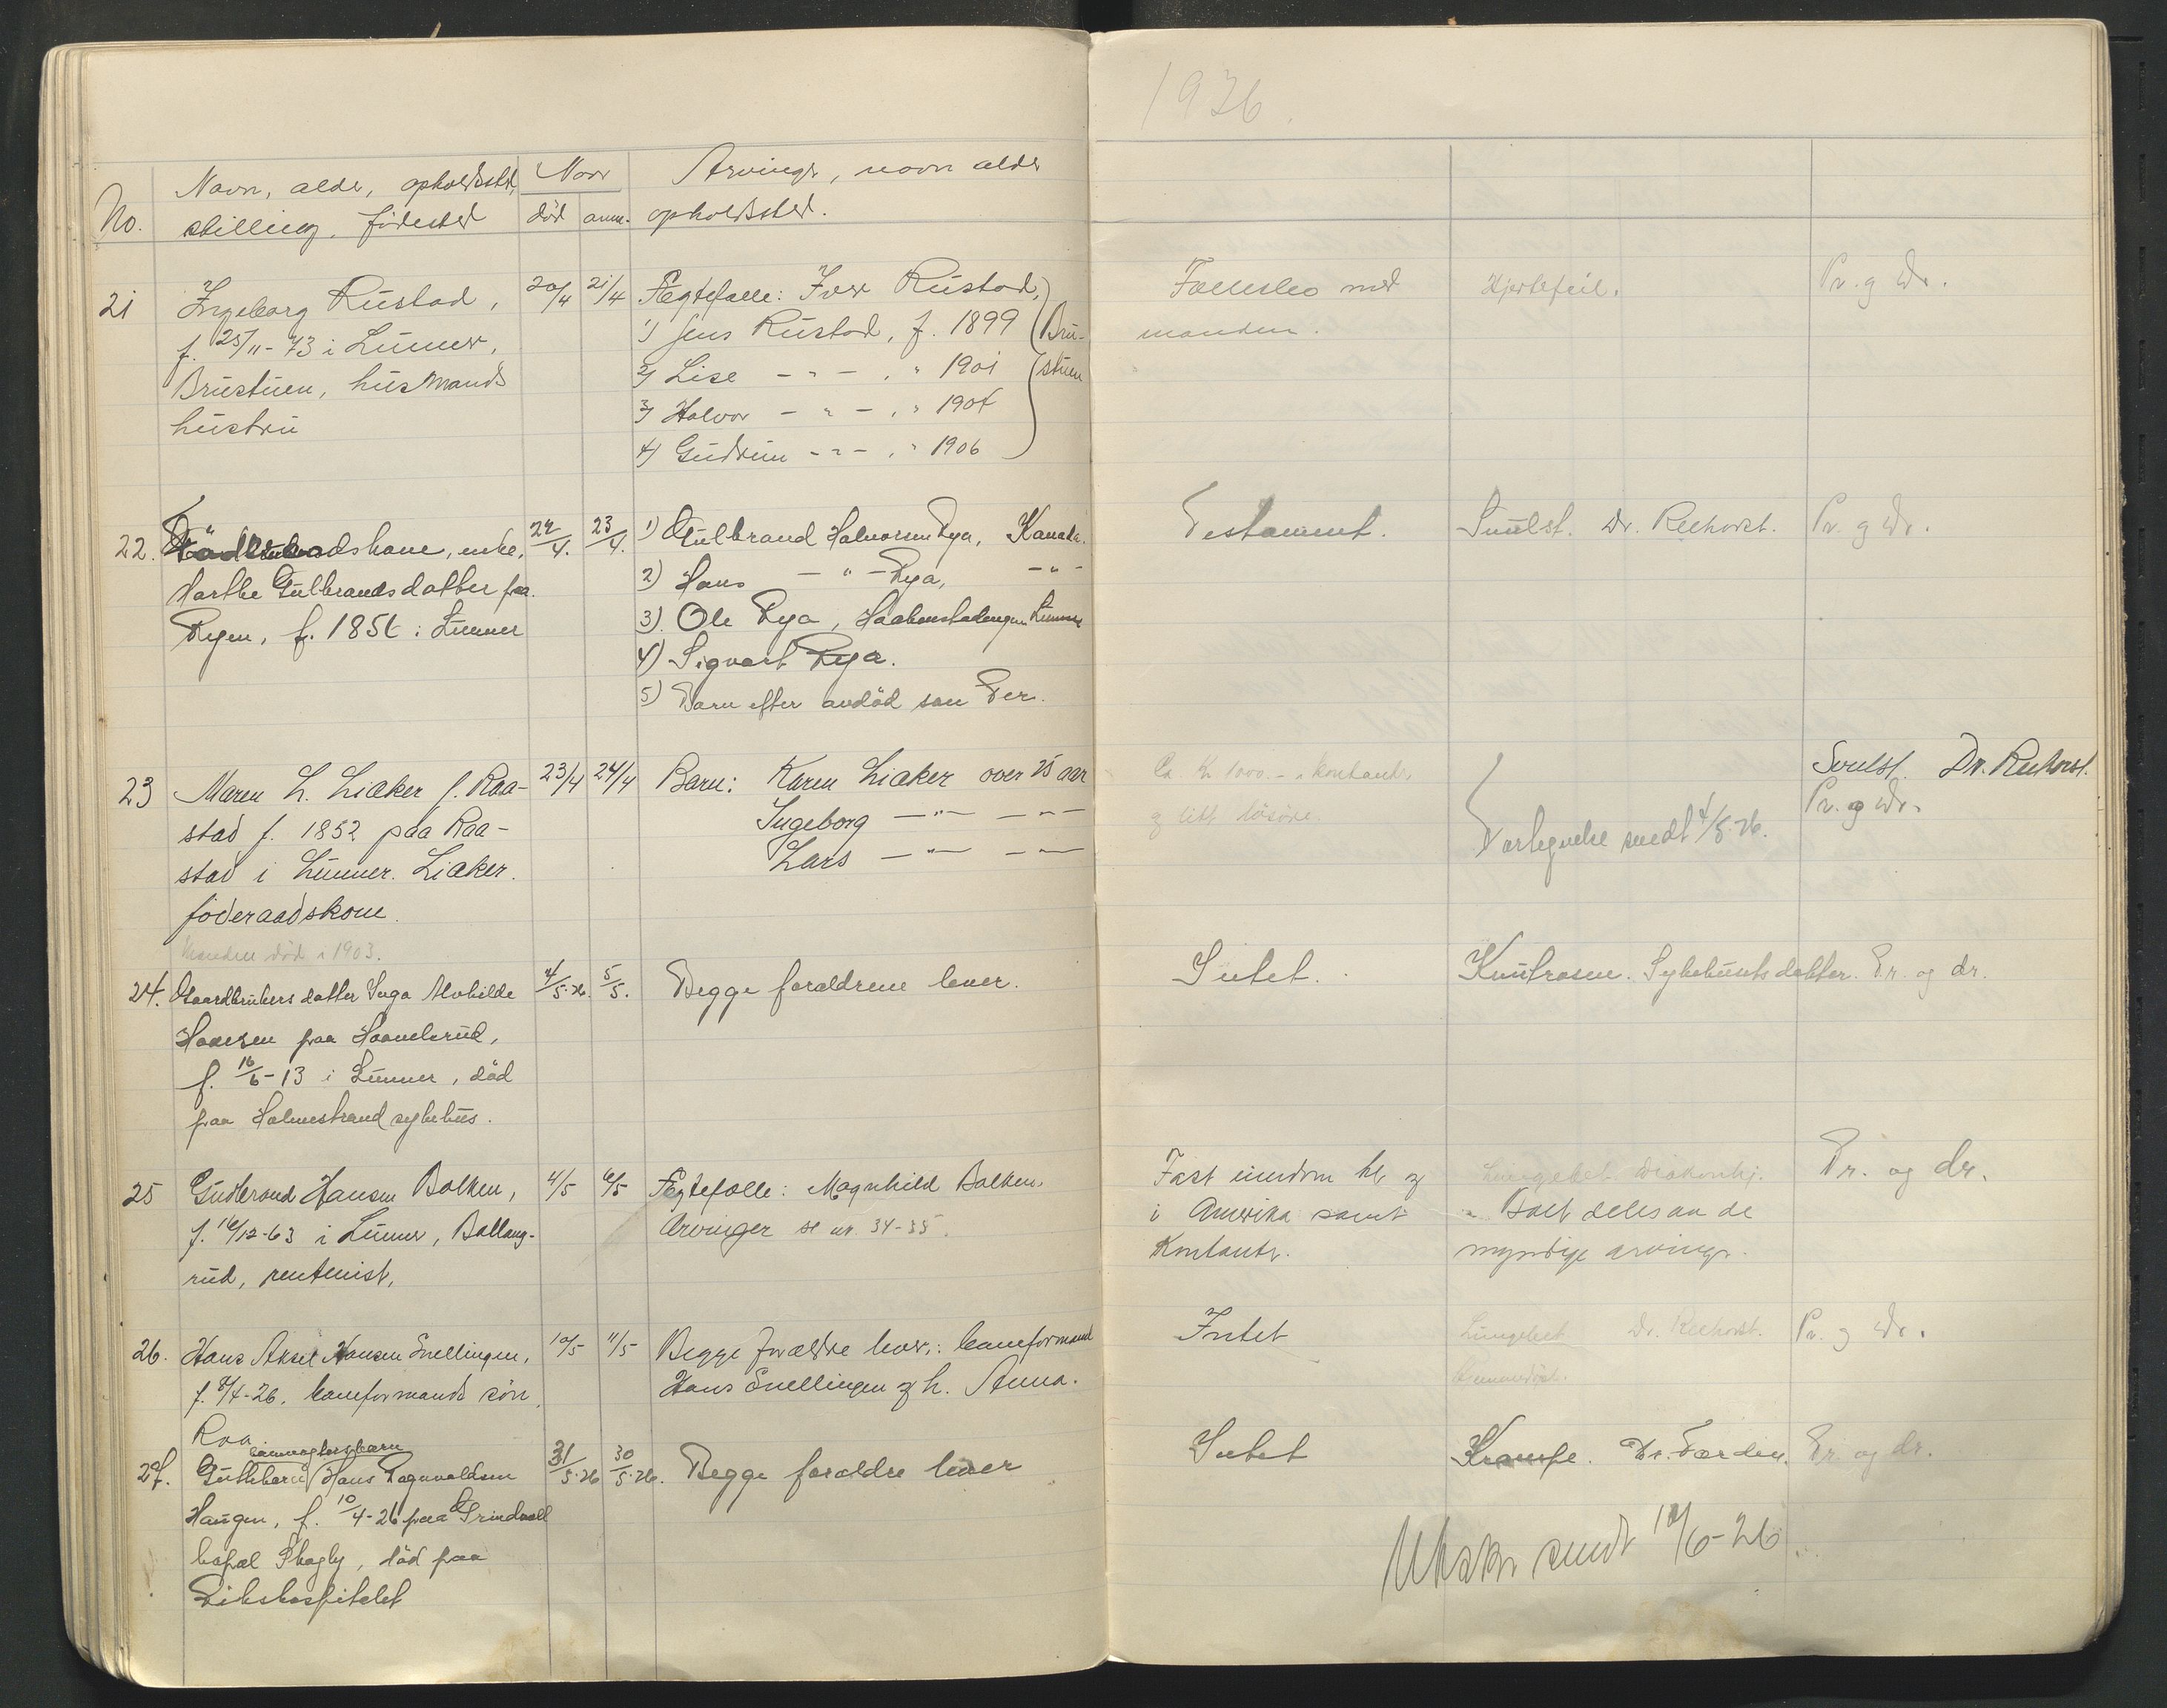 1926.
No.
Navn, alder, opholdssted,
stilling, födested
Naar
död
anm.
Arvinger, navn alder
opholdssted.
21
Ingeborg Rustad,
f. 25/11-73 i Lunner,
Brustuen, husmands
hustru
20/4
21/4
Ægtefælle: Iver Rustad,
1) Jens Rustad, f. 1899
2) Lise - " - , " 1901
3) Halvor - " - , " 1904
4) Gudrun - " - , " 1906
Bru-
stuen
Fællesbo med
manden.
Hjertefeil.
Pr. g Dr.
22.
Föderaadskone, enke,
Marthe Gulbrandsdatter paa
Ryen, f. 1856 i Lunner
22/4.
23/4.
1) Gulbrand Halvorsen Rya, Kanada.
2) Hans - " - Rya, - " -
3). Ole Rya, Lunner
4) Sigvart Rya.
5) Barn efter avdöd søn Per.
Testament.
Svulst. Dr. Reehorst.
Pr. g Dr.
23
Maren L. Liaker f. Raa-
stad f. 1852 paa Raa-
stad i Lunner. Liaker.
föderaadskone.
Manden död i 1903.
23/4
24/4
Barn: Karen Liaker over 25 aar
Ingeborg - " - - " -
Lars - " - - " -
Ca. Kr 1000.- i kontanter
g litt lösöre.
Svulst. Dr. Reehorst.
Pr. g Dr.
sendt 4/5-26.
24.
Gaardbrukers datter Inga Alvhilde
Hansen paa Haanelsrud,
f. 16/6-13 i Lunner, död
paa Holmestrand sykehus.
4/5-26.
5/5.
Begge forældrene lever.
Intet.
Knutrosen. Sykehuset. Pr. og dr.
25
Gudbrand Hansen Balken,
f. 16/12-63 i Lunner, Ballang-
rud, rentenist,
4/5
6/5
Ægtefælle: Magnhild Balken.
Arvinger se nr. 34-35.
Fast eiendom her g
i Amerika samt
Kontanter.
Boet deles av de
myndige arvinger.
Pr. og dr.
26.
Hans Aksel Hansen Snellingen,
f. 8/4-26, baneformands sön,
Roa
10/5
11/5
Begge forældre lever: baneformand
Hans Snellingen g h. Anna.
Intet
Dr. Reehorst.
Pr. g Dr.
27.
Guttebarn Hans Ragnvaldsen
Haugen, f. 10/4-26 paa Grindvoll
kapel Skogly, död paa
Rikshospitalet
31/5-26
30/5-26.
Begge forældre lever
Intet
Krampe. Dr. Færden.
Pr. og dr.
Utskr. sendt 10/6-26